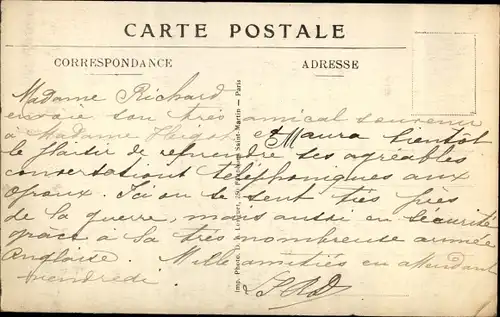 CARTE POSTALE
CORRESPONDANCE
ADRESSE
Madame Richard
envoie son très amical souvenir
à Madame et Maura bientôt
le plaisir de reprendre ses agréables
conversations téléphoniques aux
. Ici on se sent très près
de la guerre, mais aussi en sécurité
grâce à la très nombreuse armée
Anglaise. Mille amitiés en attendant
vendredi.
Imp. Photot. Saint-Martin — Paris